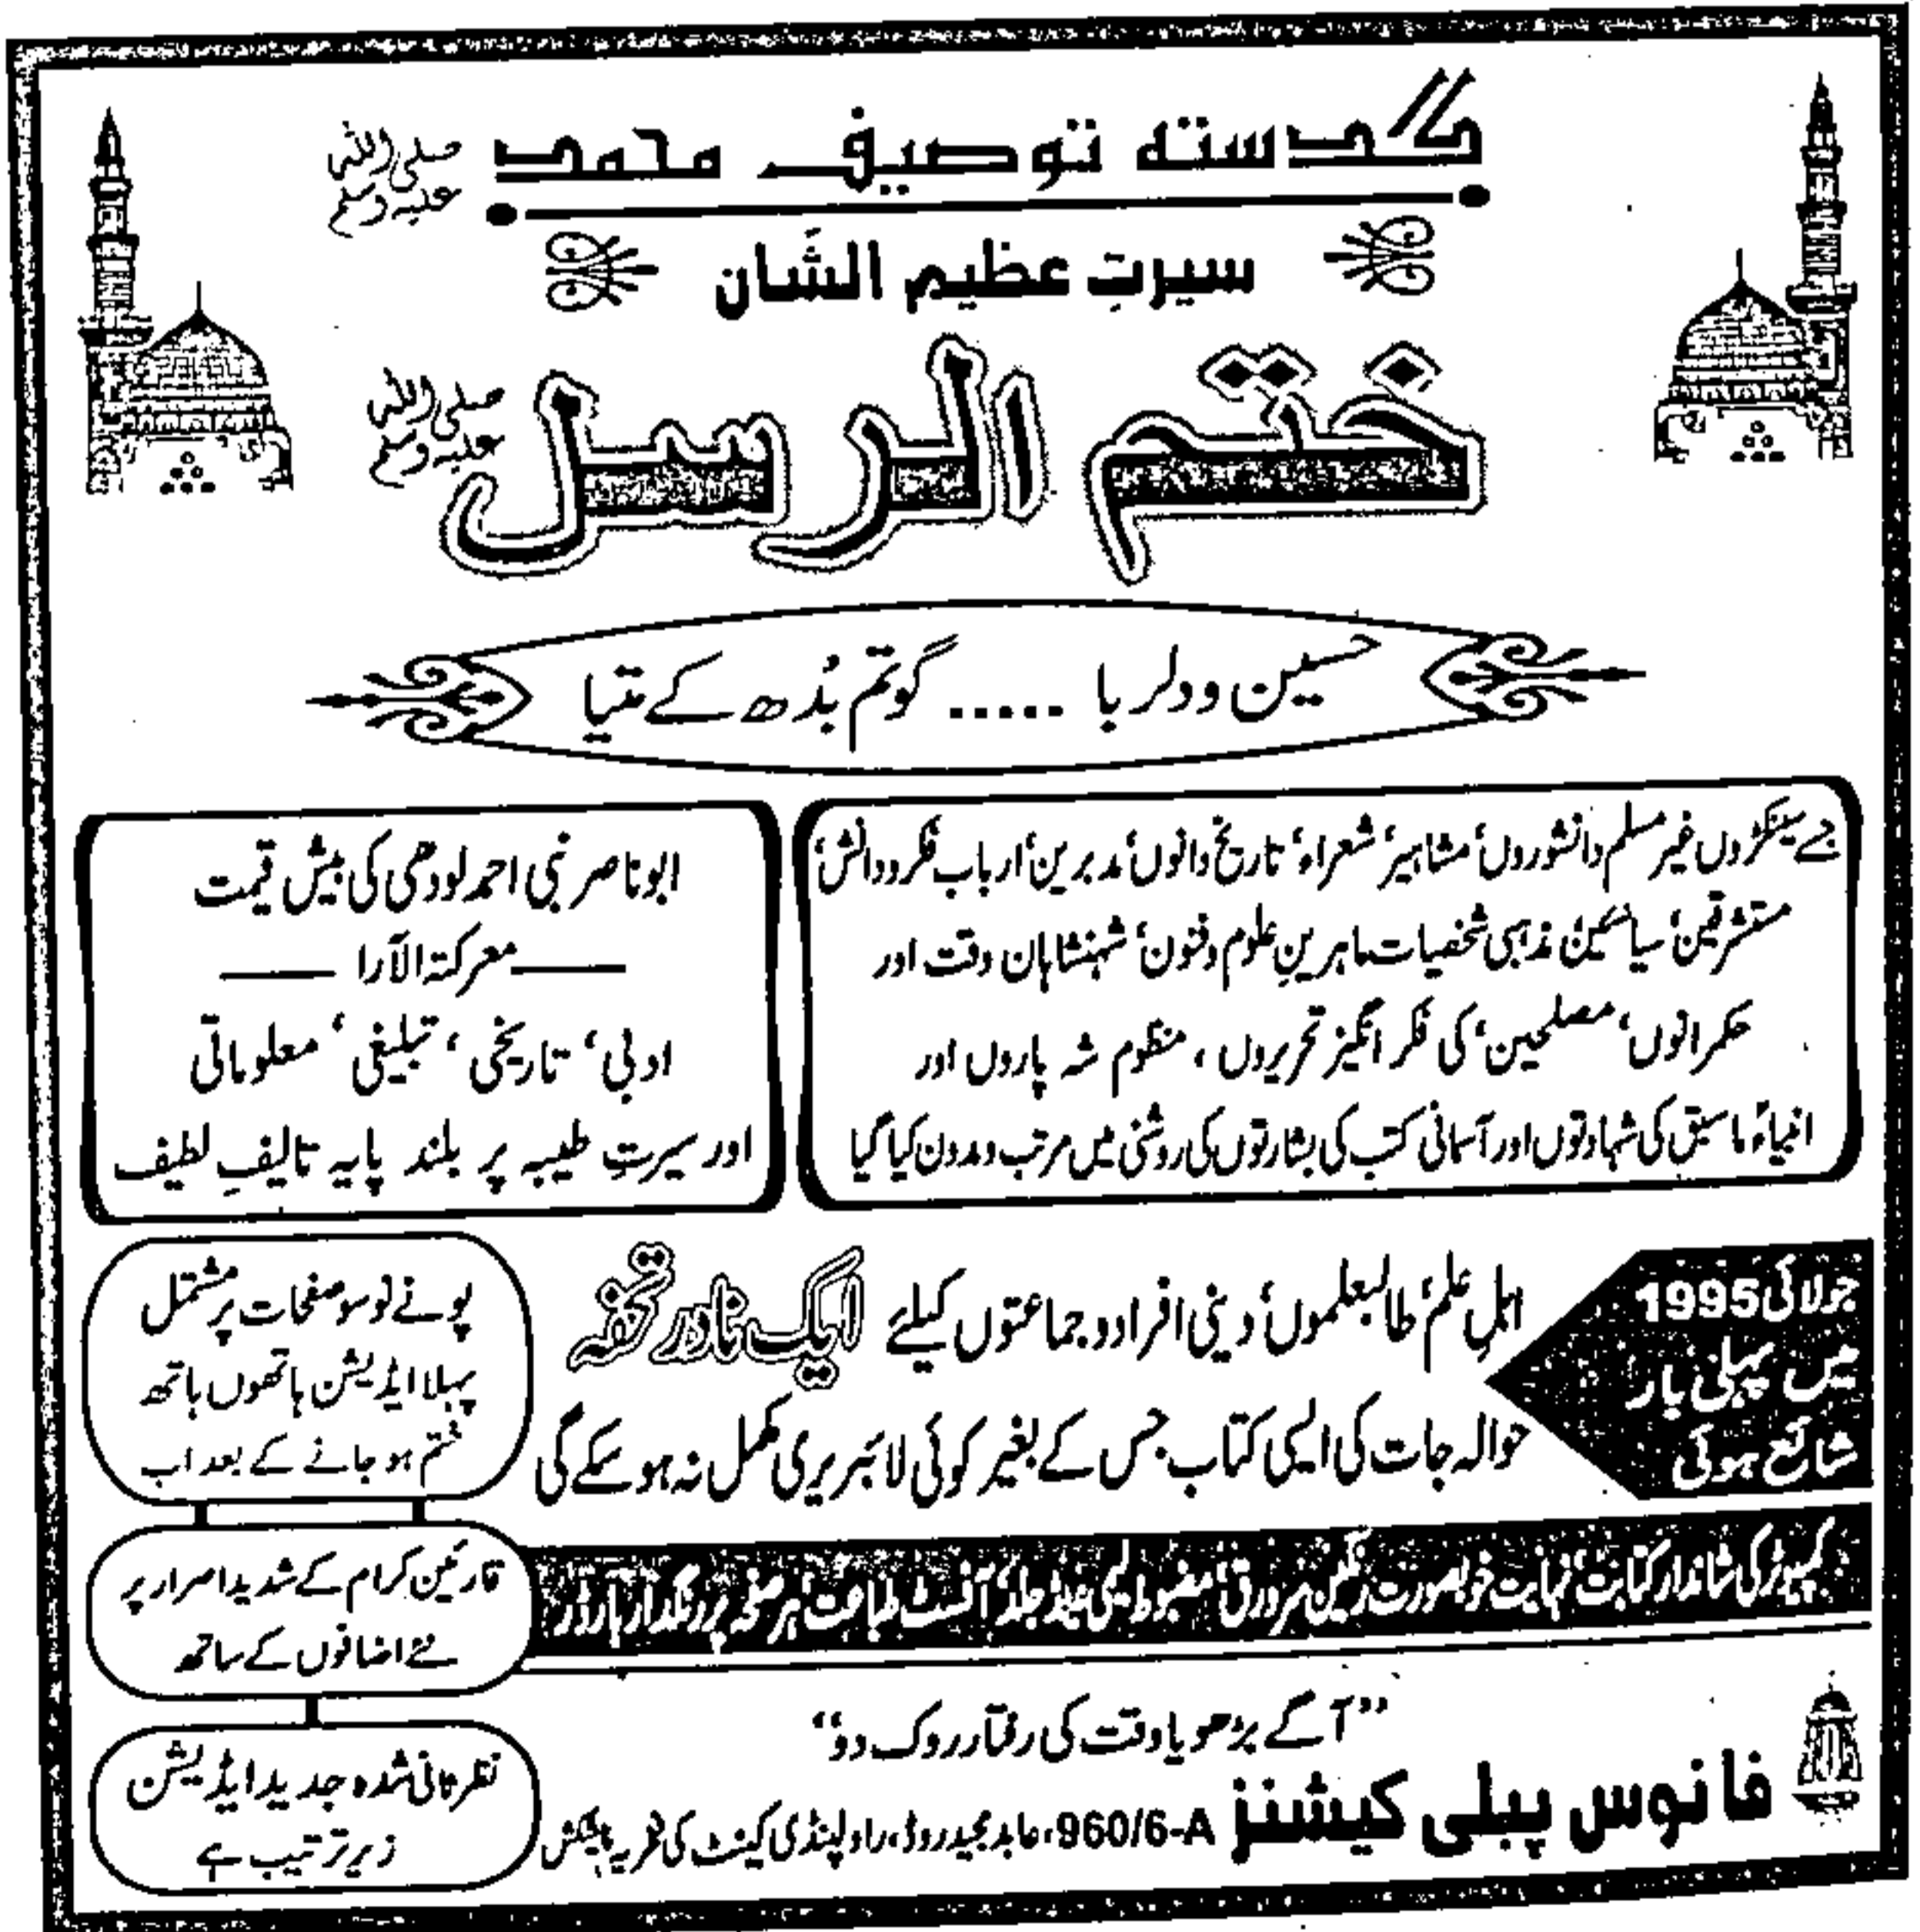 گلدستہ توصیف محمد صلی اللہ علیہ وسلم
سیرتِ عظیم الشان
ختم الرسل صلی اللہ علیہ وسلم
حسین و دلربا ..... گوتم بُدھ کے متیا
جسے سینکڑوں غیر مسلم دانشوروں، مشاہیر، شعراء، تاریخ دانوں، مدبرین، ارباب فکر و دانش،
مستشرقین، سیاستدانوں، مذہبی شخصیات، ماہرینِ علوم و فنون، شہنشاہان وقت اور
حکمرانوں، مصلحین، کی فکر انگیز تحریروں، منظوم شہ پاروں اور
انبیاءِ ماسبق کی شہادتوں اور آسمانی کتب کی بشارتوں کی روشنی میں مرتب و مدون کیا گیا
ابو ناصر نبی احمد لودھی کی بیش قیمت
معرکۃ الآرا
ادبی، تاریخی، تبلیغی، معلوماتی
اور سیرتِ طیبہ پر بلند پایہ تالیفِ لطیف
جولائی 1995
میں پہلی بار
شائع ہوئی
اہلِ علم، طالبعلموں، دینی افراد و جماعتوں کیلئے ایک نادر تحفہ
حوالہ جات کی ایسی کتاب جس کے بغیر کوئی لائبریری مکمل نہ ہو سکے گی
پونے نو سو صفحات پر مشتمل
پہلا ایڈیشن ہاتھوں ہاتھ
ختم ہو جانے کے بعد اب
قارئین کرام کے شدید اصرار پر
نئے اضافوں کے ساتھ
نظر ثانی شدہ جدید ایڈیشن
زیر ترتیب ہے
کمپیوٹر کی شاندار کتابت، نہایت خوبصورت رنگین سرورق، مضبوط جلد، آفسٹ طباعت، ہر صفحہ پر رنگدار بارڈر
”آگے بڑھو یا وقت کی رفتار روک دو“
فانوس پبلی کیشنز 960/6-A، عابد مجید روڈ، راولپنڈی کینٹ کی فخریہ پیشکش